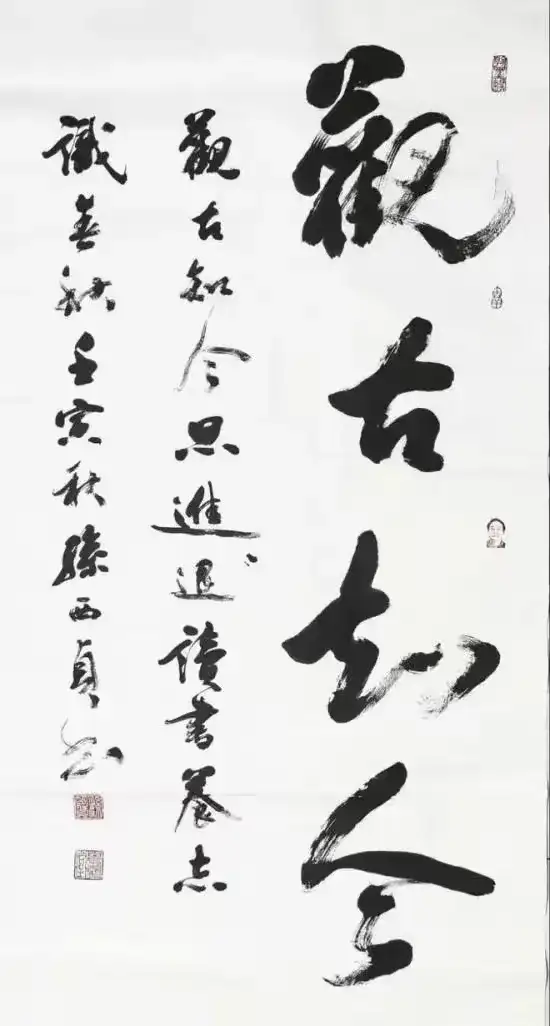 觀古知今
觀古知今思進退讀書養志
識春秋壬寅秋滕西貞書